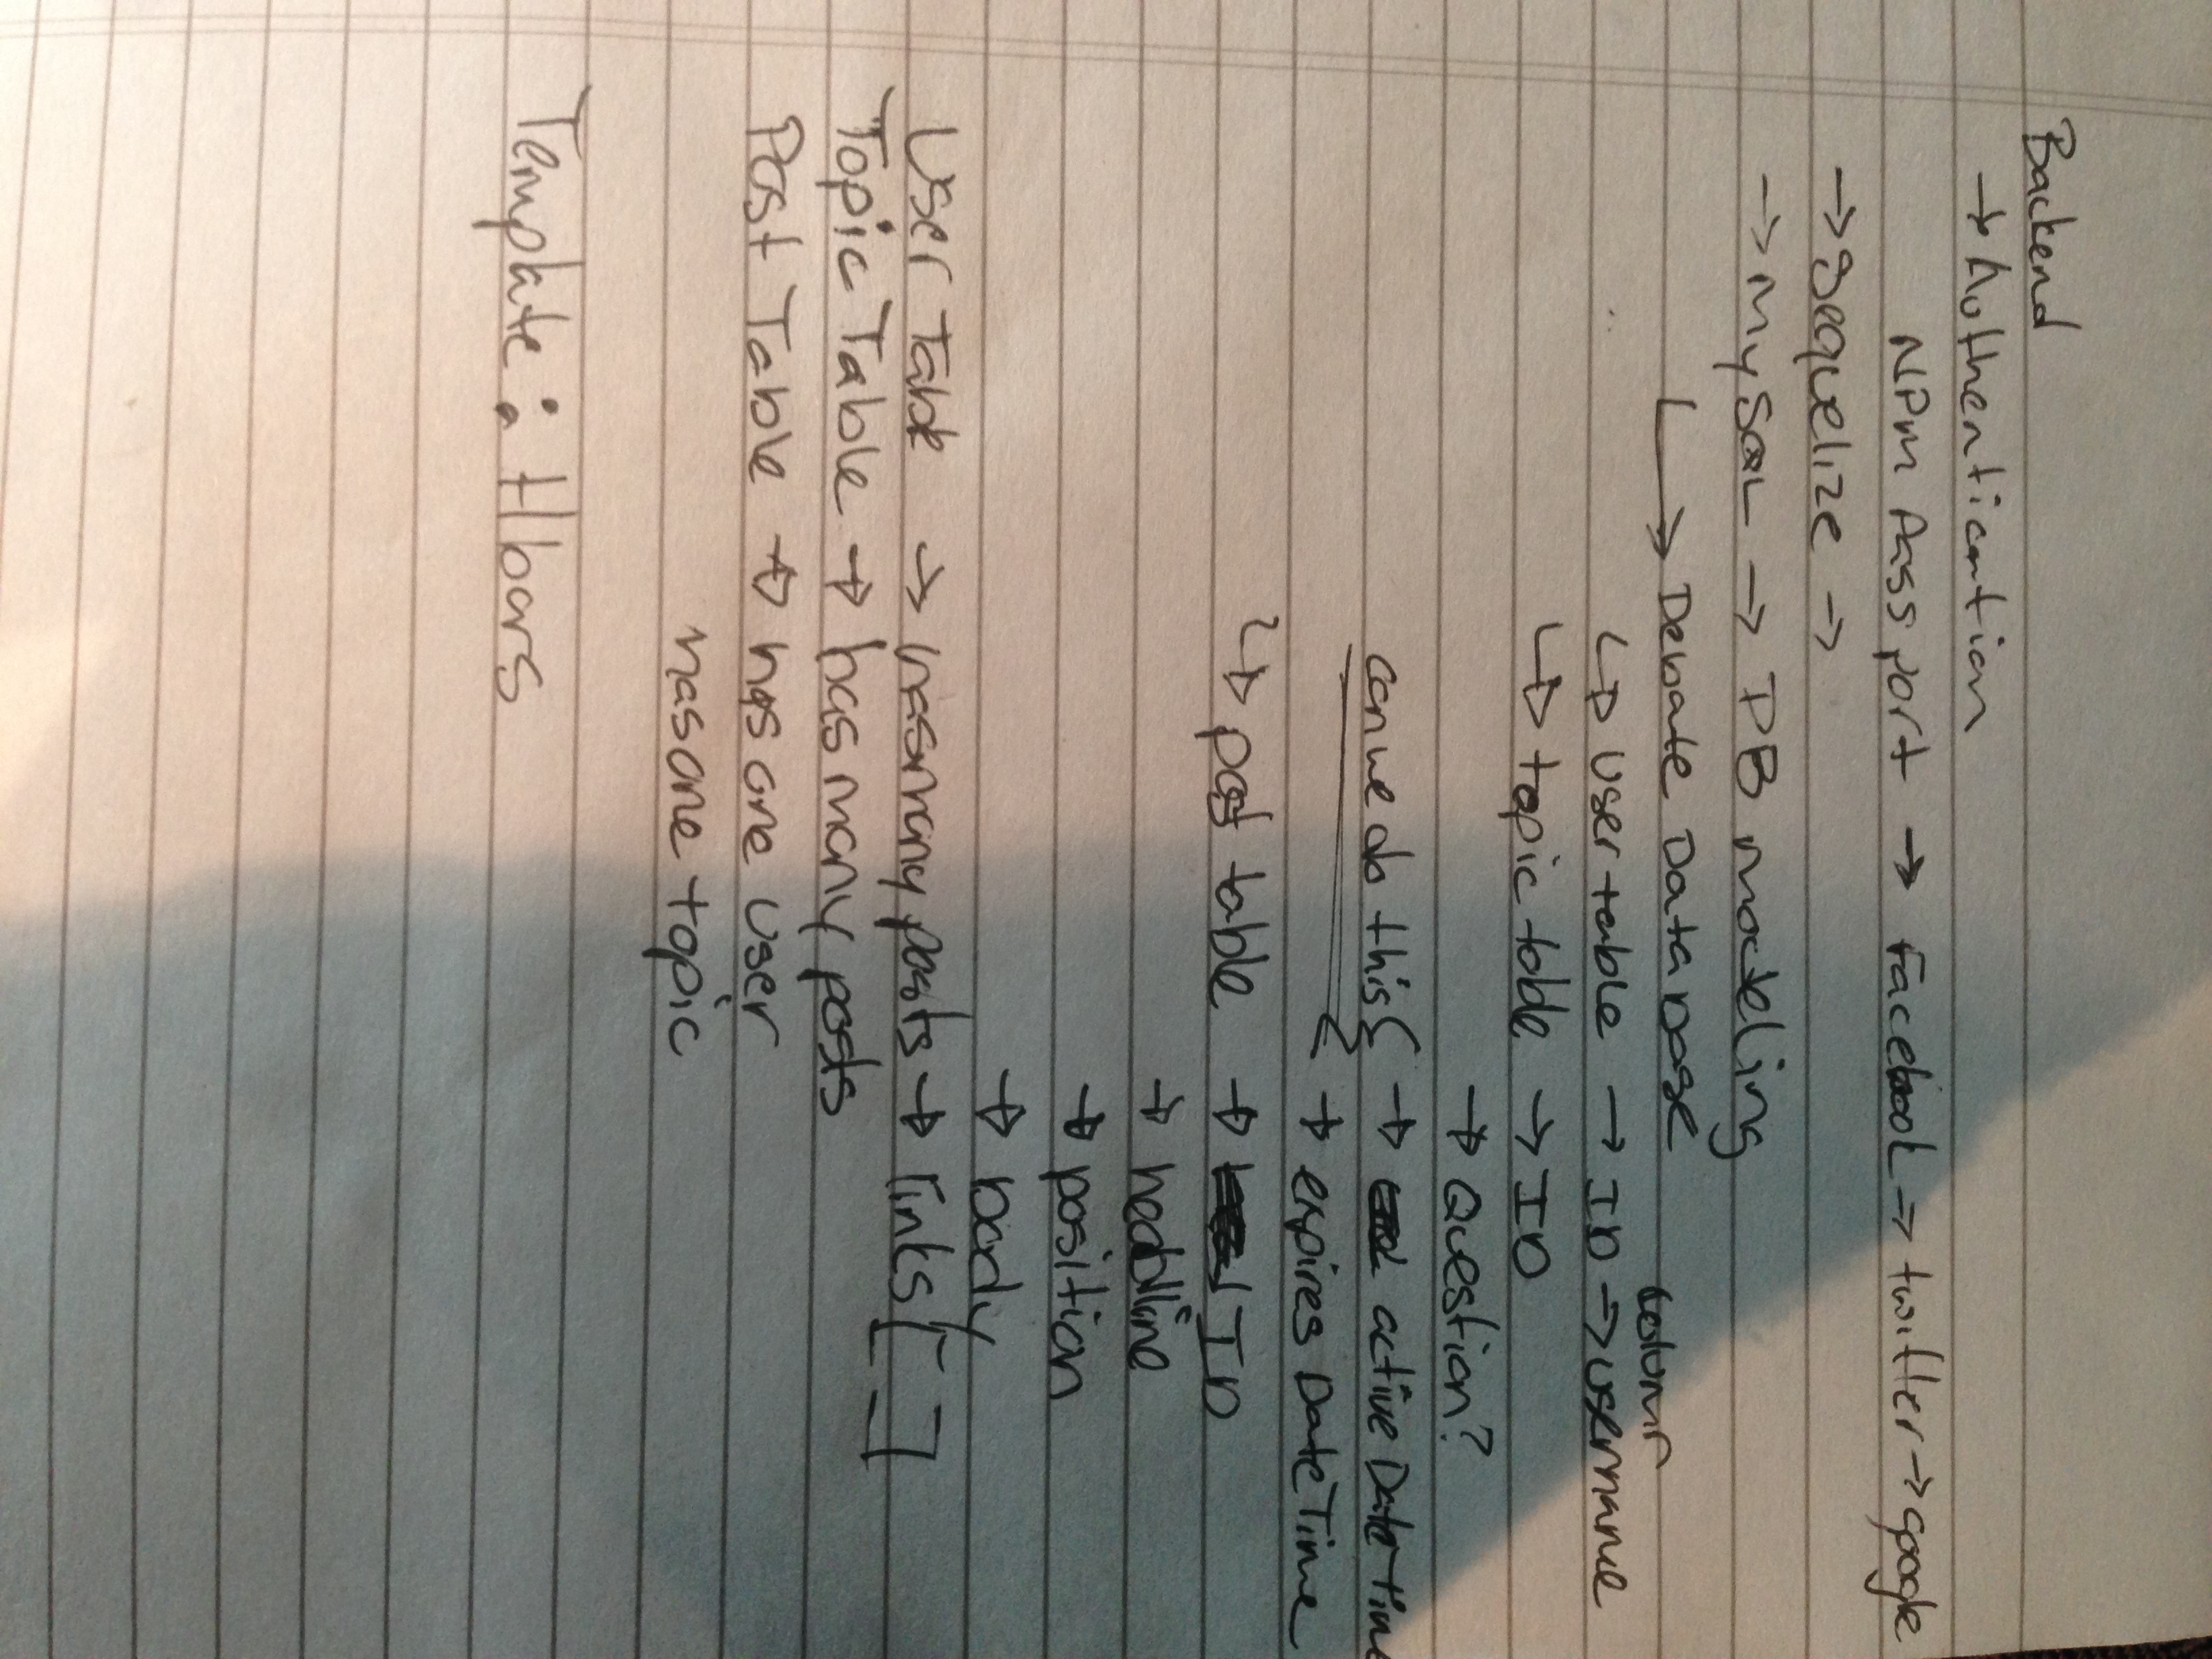 Backend
→ Authentication
NPM Passport → Facebook → twitter → google
→ Sequelize →
→ MySQL → DB modeling
↳ Debate Database
column
↳ User table → ID → username
↳ topic table → ID
→ Question?
can we do this { → active DateTime
→ expires DateTime
↳ post table → ID
→ headline
→ position
→ body
User Table → has many posts → links [ ]
Topic Table → has many posts
Post Table → has one user
has one topic
Template: Hbars